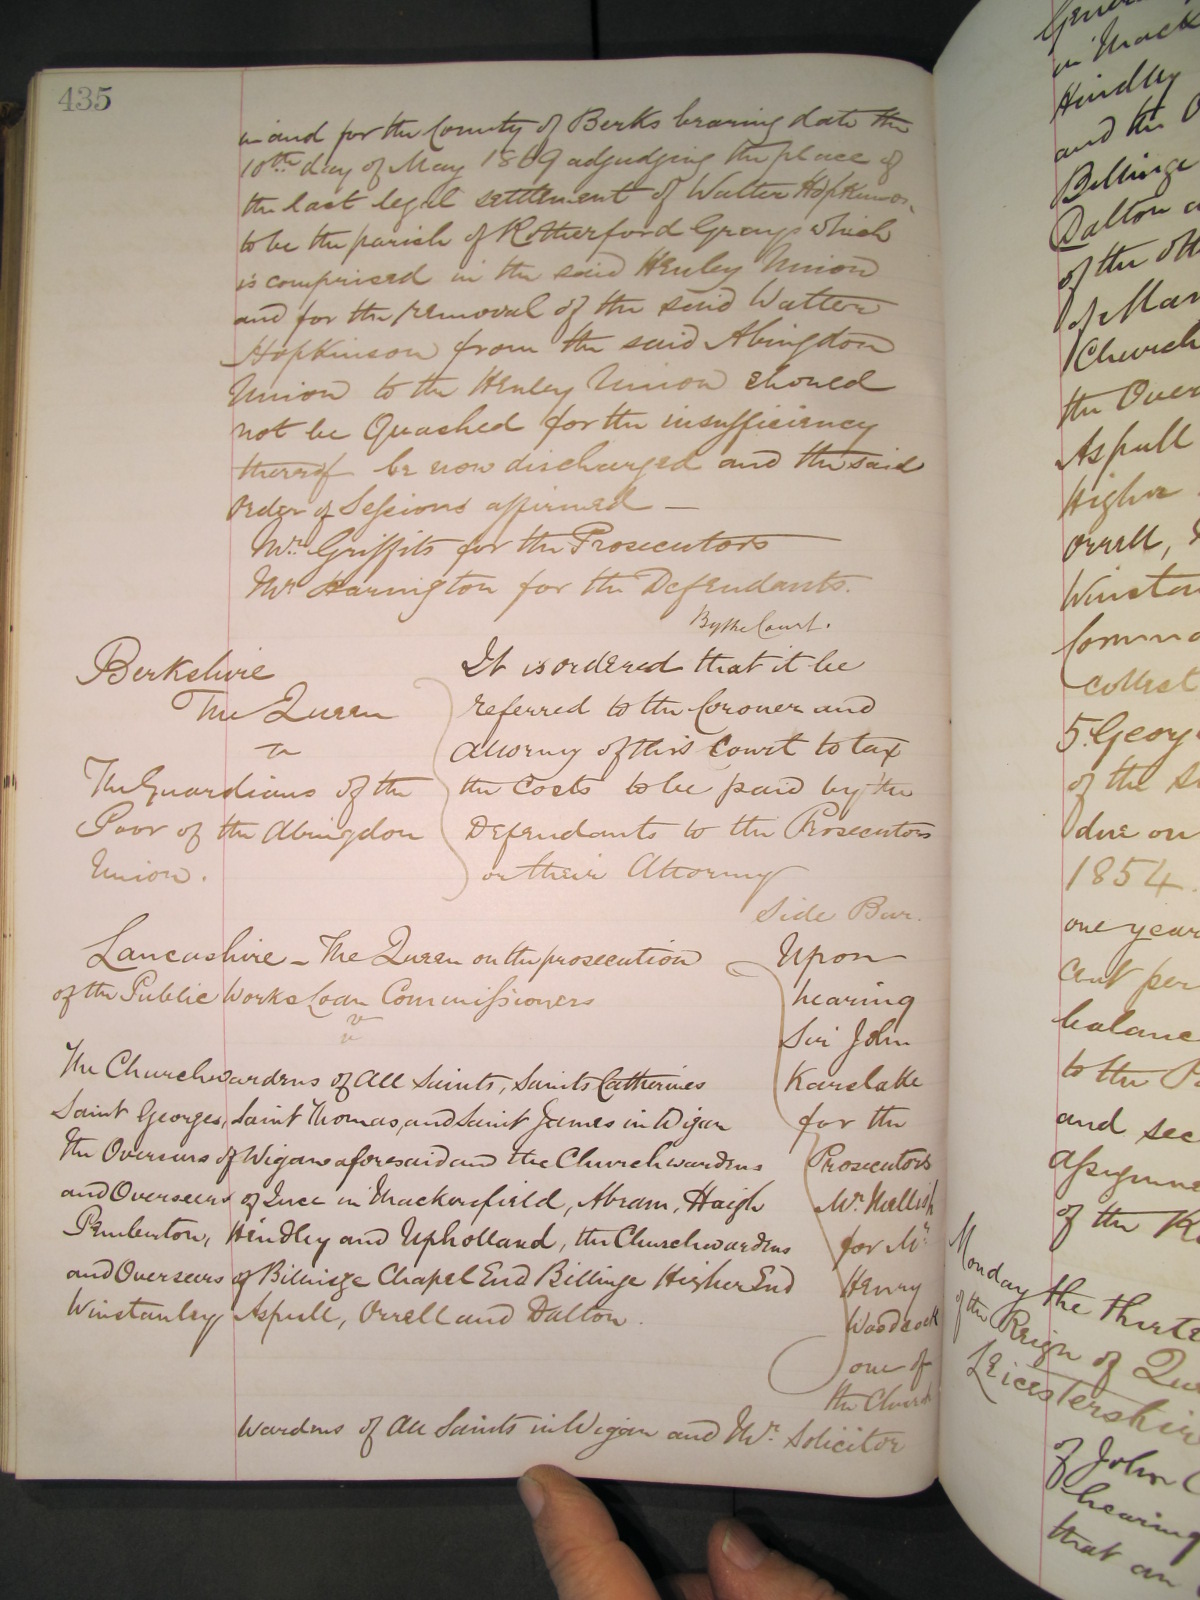 435
in and for the County of Berks bearing date the
10th day of May 1869 adjudging the place of
the last legal settlement of Walter Hopkinson
to be the parish of Rotherford Greys which
is comprised in the said Henley Union
and for the removal of the said Walter
Hopkinson from the said Abingdon
Union to the Henley Union should
not be Quashed for the insufficiency
thereof be now discharged and the said
Order of Sessions affirmed —
Mr. Griffits for the Prosecutors
Mr. Harington for the Defendants.
By the Court.
Berkshire
The Queen
v
The Guardians of the
Poor of the Abingdon
Union.
It is ordered that it be
referred to the Coroner and
Attorney of this Court to tax
the Costs to be paid by the
Defendants to the Prosecutors
or their Attorney
Side Bar.
Lancashire – The Queen on the prosecution
of the Public Works Loan Commissioners
v
The Churchwardens of All Saints, Saints Catherines
Saint Georges, Saint Thomas, and Saint James in Wigan
the Overseers of Wigan aforesaid and the Churchwardens
and Overseers of Ince in Mackersfield, Abram, Haigh
Pemberton, Hindley and Upholland, the Churchwardens
and Overseers of Billinge Chapel End Billinge Higher End
Winstanley Aspull, Orrell and Dalton.
Upon
hearing
Sir John
Karslake
for the
Prosecutors
Mr. Mellish
for Mr
Henry
Woodcock
one of
the Church
wardens of All Saints in Wigan and Mr. Solicitor
in Mack
Hindley
and the O
Billinge
Dalton
of the oth
of Man
Church
the Over
Aspull
Higher
Orrell,
Winstan
Comm
collect
5 Georg
of the
due on
1854.
one year
cent per
balance
to the P
and sec
Assignme
of the
Monday the thirte
of the Reign of Que
Leicestershire
of John
hearing
that an